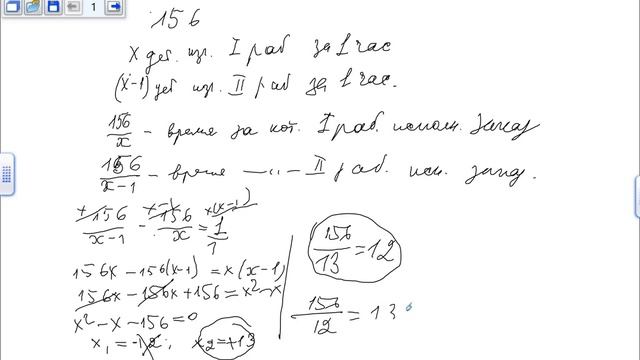 1
156
x дет. изг. I раб за 1 час
(x-1) дет изг. II раб за 1 час.
156/x - время за кот. I раб. исполн. заказ
156/(x-1) - время —〃— II раб. исп. заказ.
156/(x-1) - 156/x = 1/1
x x-1 x(x-1)
156x - 156(x-1) = x(x-1)
156x - 156x + 156 = x² - x
x² - x - 156 = 0
x₁ = -12; x₂ = +13
156/13 = 12
156/12 = 13